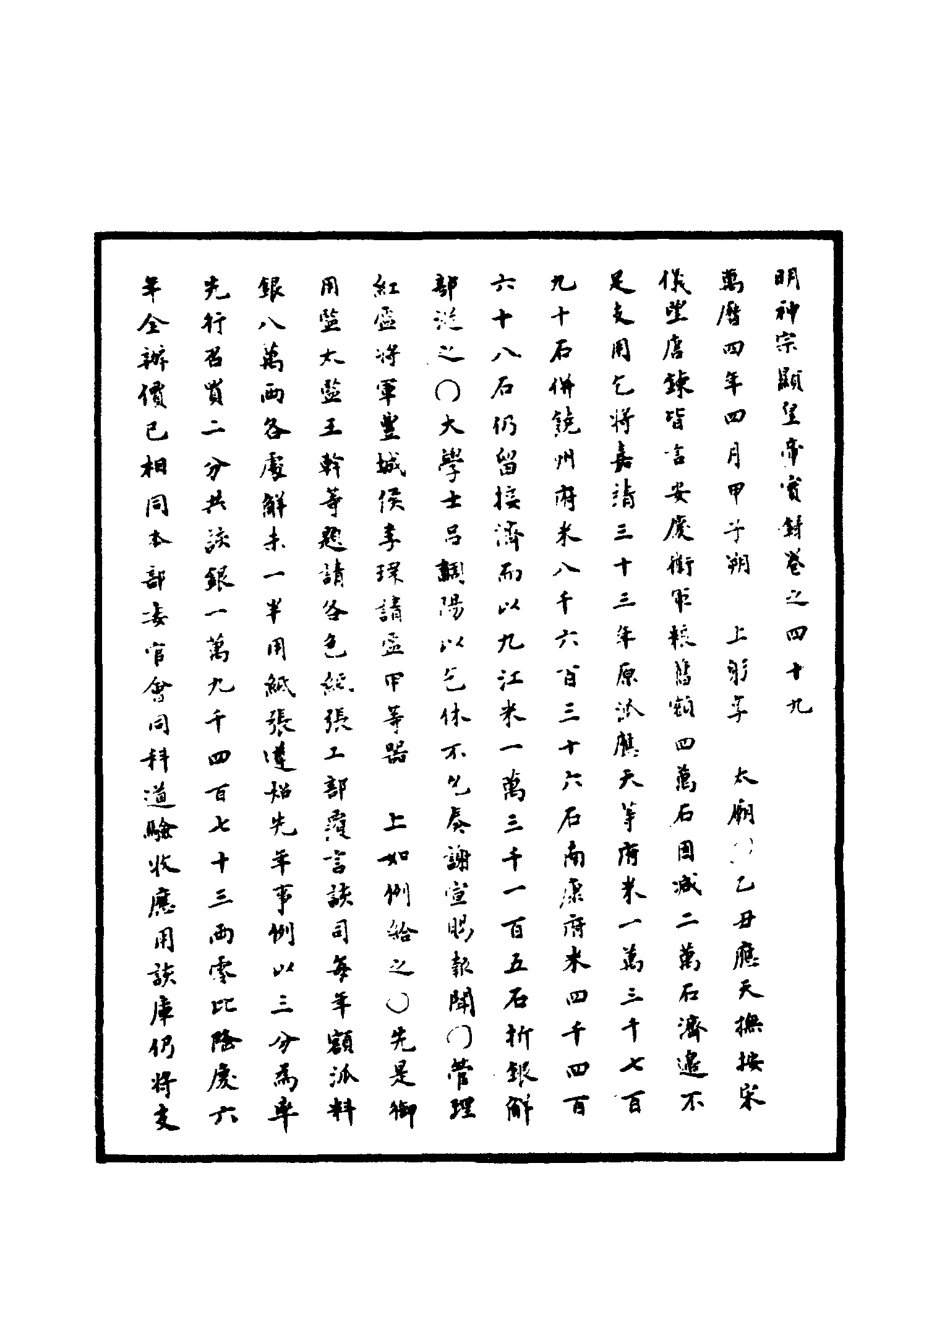 明神宗顯皇帝實錄卷之四十九
萬曆四年四月甲子朔　上彰享　太廟〇乙丑應天撫按宋
儀望唐鍊皆言安慶衛軍粮舊額四萬石因減二萬石濟邊不
足支用乞將嘉靖三十三年原派應天等府米一萬三千七百
九十石併饒州府米八千六百三十六石南康府米四千四百
六十八石仍留接濟而以九江米一萬三千一百五石折銀解
部從之〇大學士呂調陽以乞休不允奏謝宣賜報聞〇管理
紅盔將軍豐城侯李環請盔甲等器　上如例給之〇先是御
用監太監王幹等題請各色紙張工部覆言該司每年額派料
銀八萬兩各處解未一半用紙張遵炤先年事例以三分為率
先行召買二分共該銀一萬九千四百七十三兩零比隆慶六
年全辦價已相同本部委官會同科道驗收應用該庫仍將支